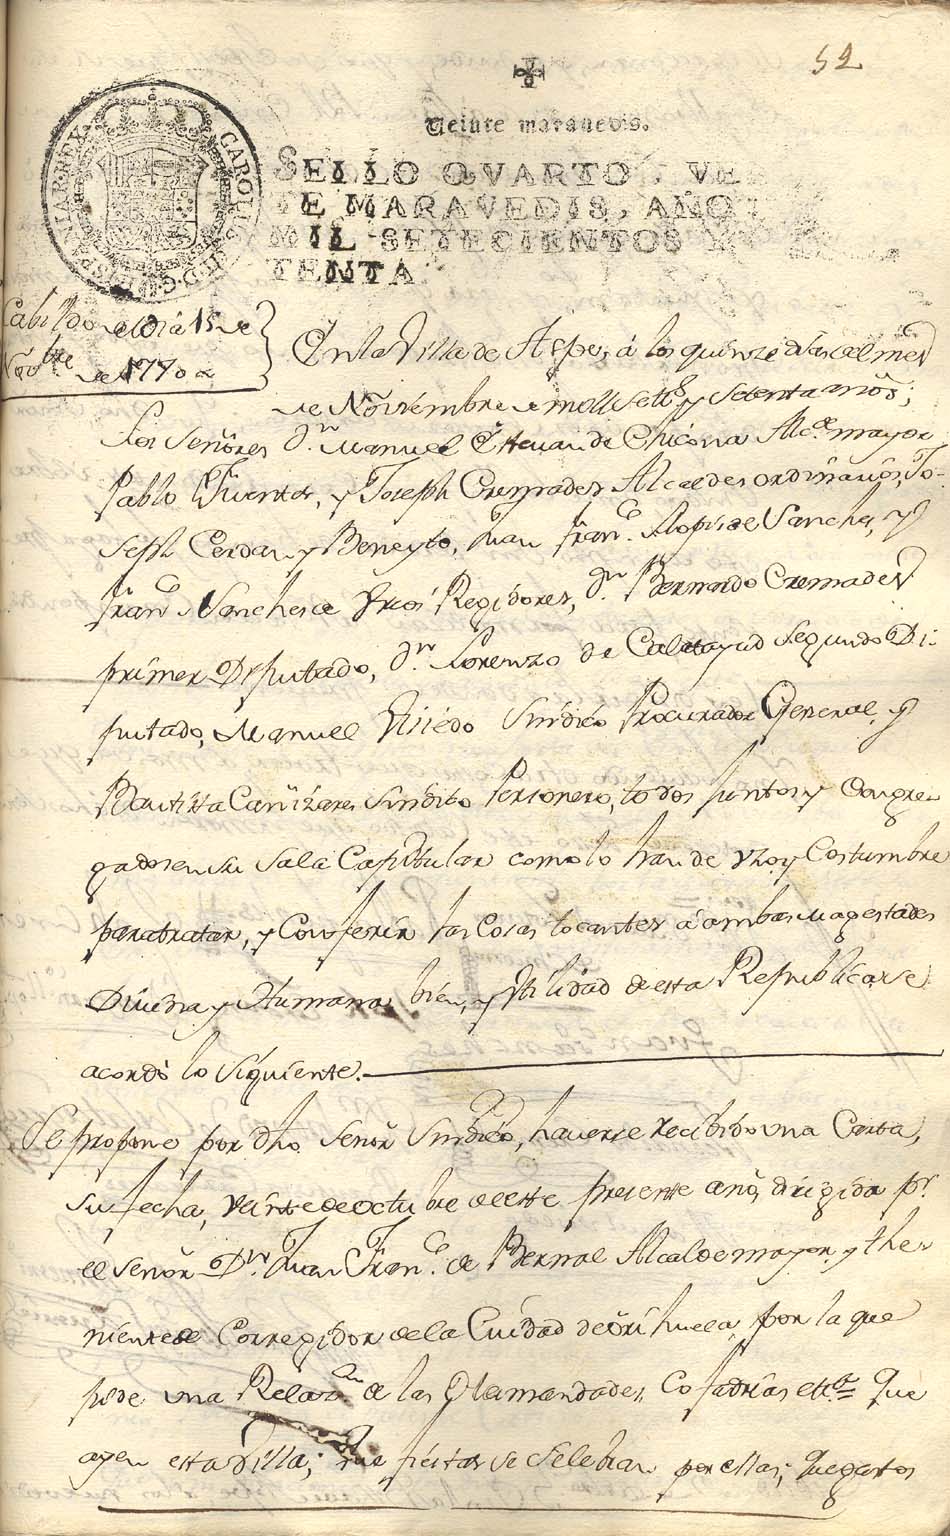 52
Veinte maravedis.
SELLO QVARTO, VE
TE MARAVEDIS, AÑO
MIL SETECIENTOS Y
TENTA
CAROLUS III D G HISPANIAR REX
Cabildo del dia 15 de
Novbre de 1770
En la Villa de Aspe, á los quinze dias del mes
de Noviembre de mill settz y setenta años;
los Señores Dn Manuel Estevan de Chicona Alce mayor
Pablo Fuentes, y Joseph Cremades Alcaldes ordinarios, Jo-
seph Cerdan y Beneyto, Juan Franco Llopis de Sancho, y
Franco Sanches de Regidores, Dn Bernardo Cremades
primer Diputado, Dn Lorenzo de Calatayud Segundo Di-
putado, Manuel Sindico Procurador General, y
Bautista Cañizares Sindico Personero, todos juntos y Congre
gados en su Sala Capitular como lo han de vzo y Costumbre
para tratar, y Conferir las Cosas tocantes á ambas Magestades
Divina y Humana, bien, y Vtilidad de esta Republica, se
acordò lo siguiente.
Se propone por dho Señor Sindico, haverse recibido una Carta,
su fecha, veinte de octubre de este presente año, dirigida pr
el señor Dn Juan Franco de Bernal Alcalde mayor, y the
niente de Corregidor de la Ciudad de Orihuela, por la que
pide una Relazon de las Hermandades, Cofadrias ettca que
ay en esta Villa; que fiestas se selebran por ellas; que gastos